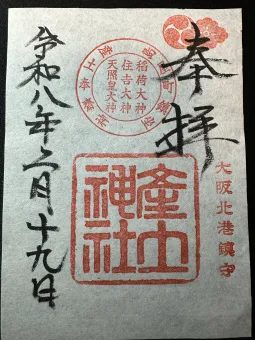 奉拝
大阪北港鎮守
稲荷大神
住吉大神
天照皇大神
産土神社
令和八年二月十九日